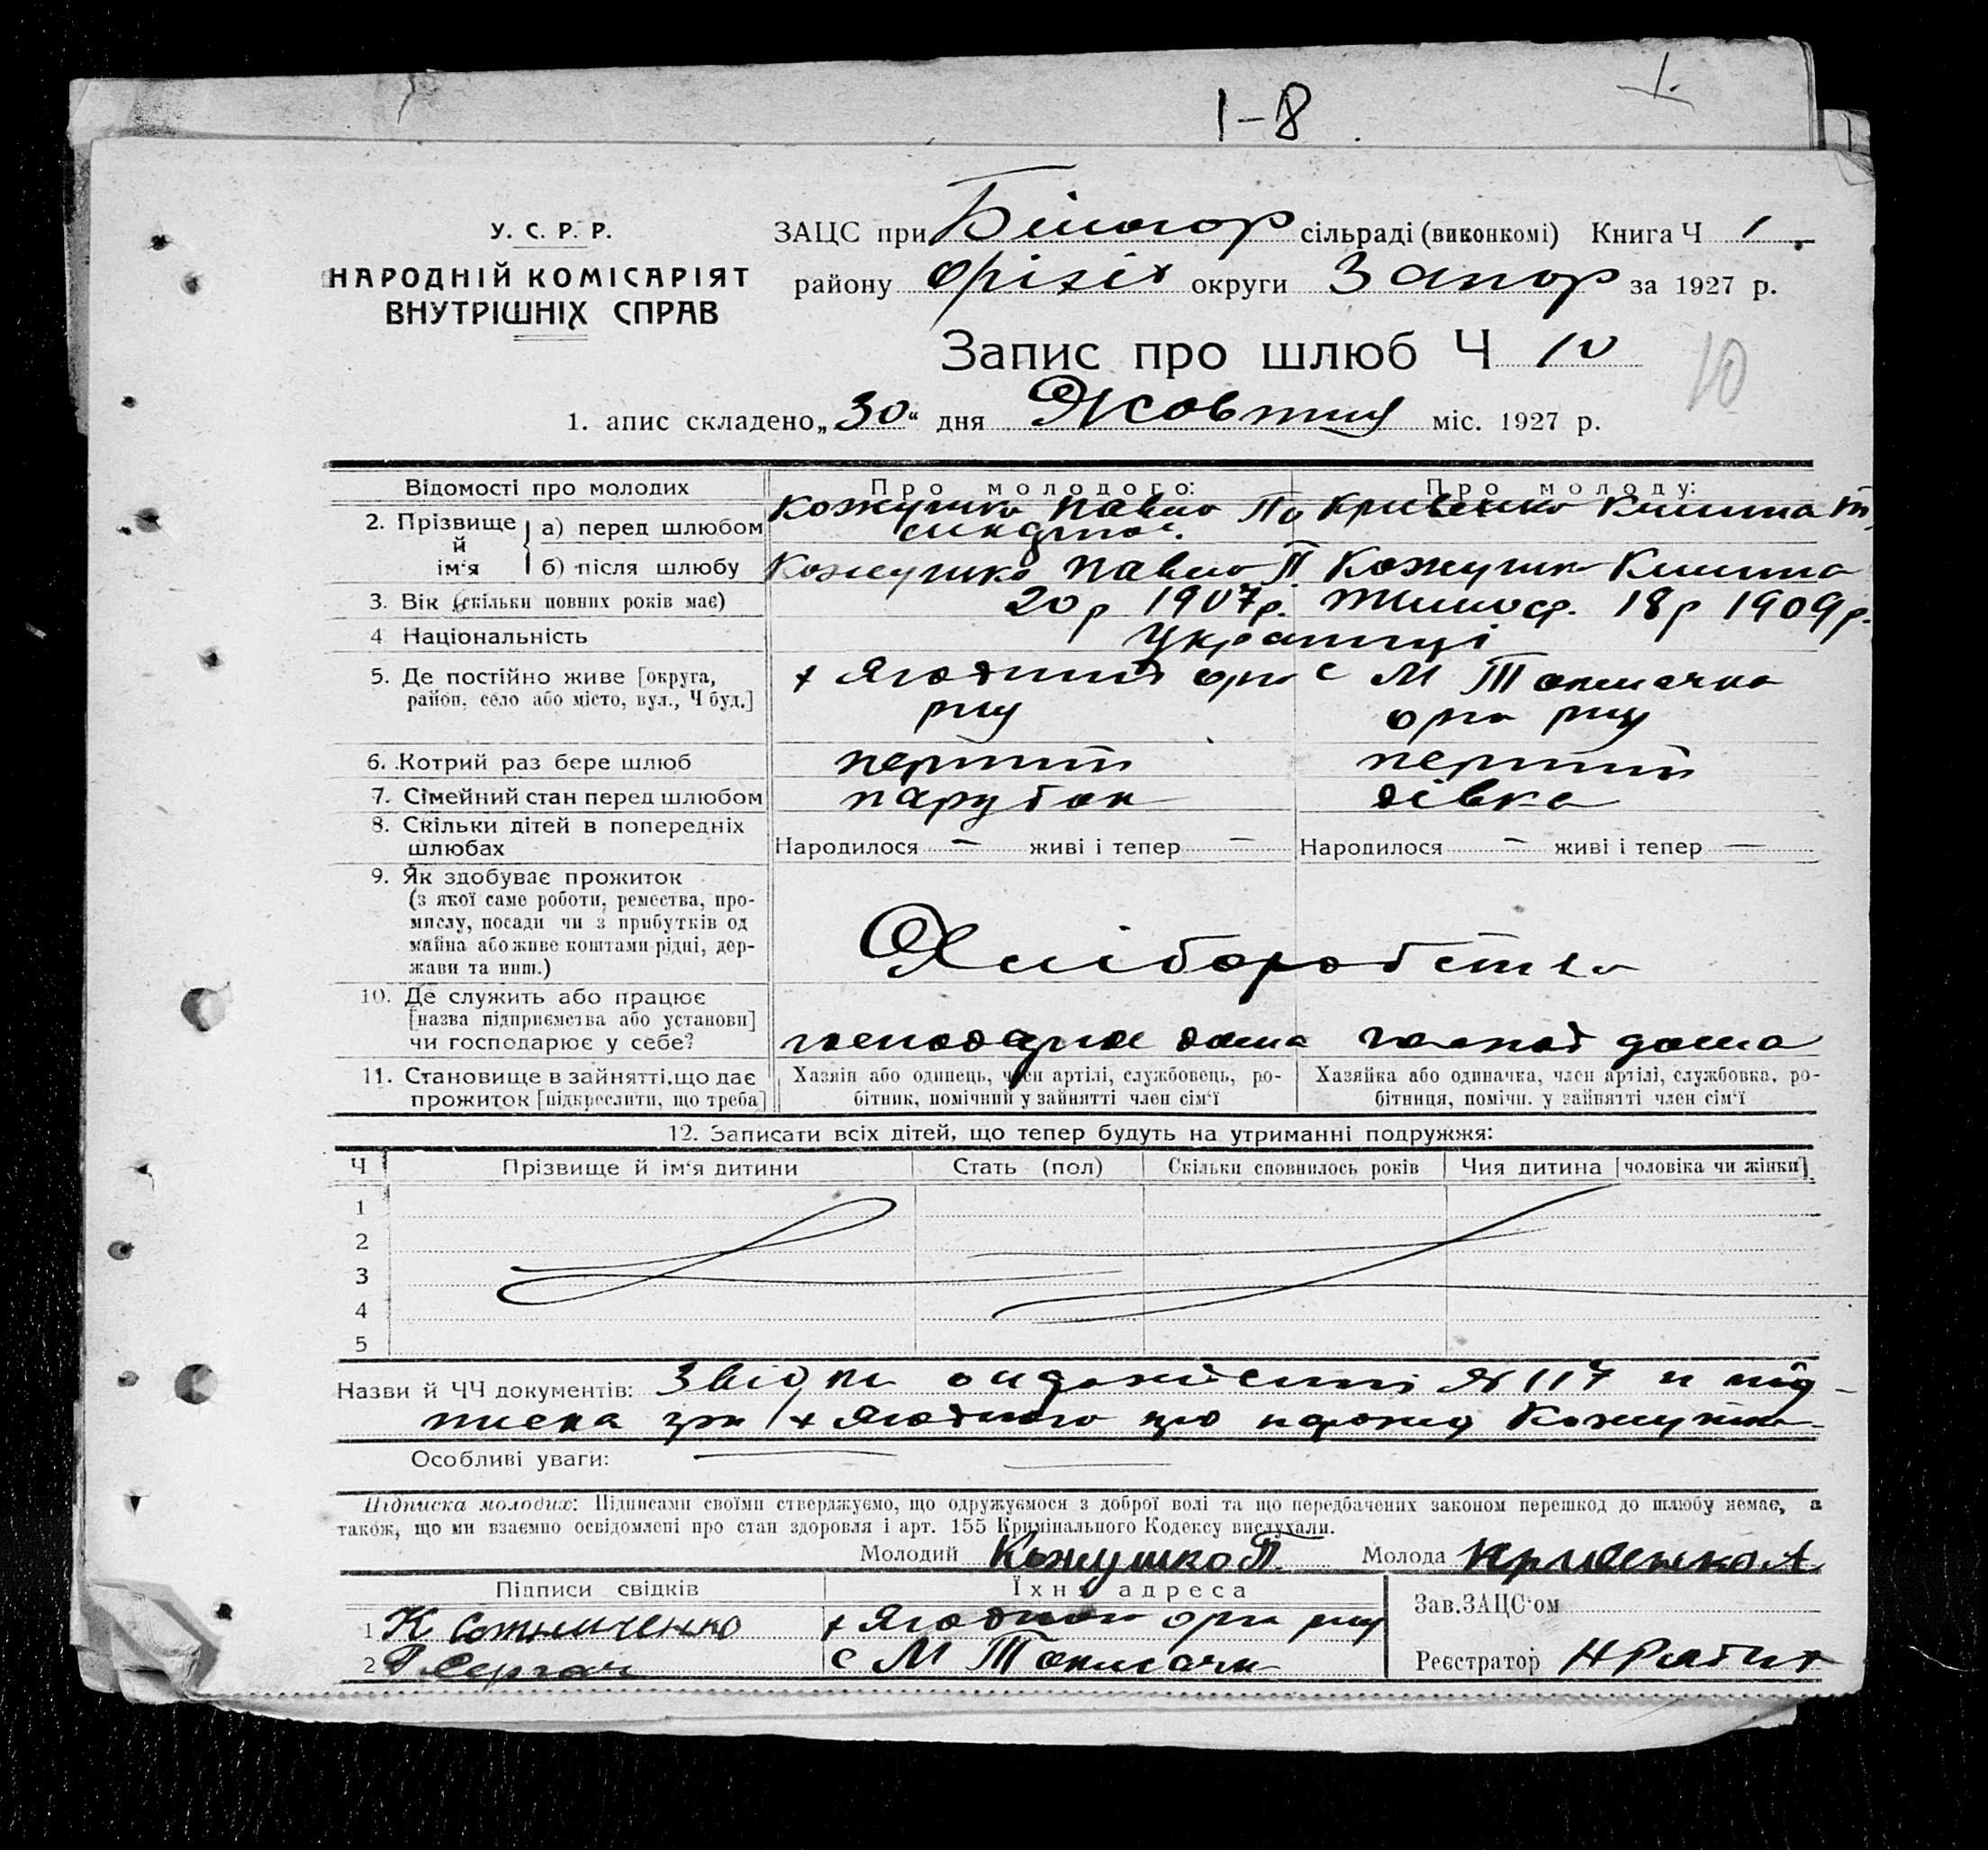 1-8
1.
У. С. Р. Р.
НАРОДНІЙ КОМІСАРІЯТ
ВНУТРІШНІХ СПРАВ
ЗАЦС при Білогор сільраді (виконкомі) Книга Ч 1
району Оріхів округи Запор за 1927 р.
Запис про шлюб Ч 10
10
1. апис складено „30“ дня Жовтня міс. 1927 р.
Відомості про молодих
Про молодого:
Про молоду:
2. Прізвище й ім‘я
а) перед шлюбом
Кожушко Павло По
Кривенко
б) після шлюбу
Кожушко Павло П
Кожушко
3. Вік (скільки повних років має)
20 р 1907 р.
18 р 1909 р.
4 Національність
Українці
5. Де постійно живе [округа,
район, село або місто, вул., Ч буд.]
х Ягідний оріх
рну
с М Токмачка
оріх рну
6. Котрий раз бере шлюб
перший
перший
7. Сімейний стан перед шлюбом
парубок
дівка
8. Скільки дітей в попередніх
шлюбах
Народилося — живі і тепер —
Народилося — живі і тепер —
9. Як здобуває прожиток
(з якої саме роботи, ремества, про-
мислу, посади чи з прибутків од
майна або живе коштами рідні, дер-
жави та инш.)
Хліборобство
10. Де служить або працює
[назва підприємства або установи]
чи господарює у себе?
господарює дома
господ дома
11. Становище в зайнятті, що дає
прожиток [підкреслити, що треба]
Хазяін або одинець, член артілі, службовець, ро-
бітник, помічний у зайнятті член сім‘ї
Хазяйка або одиначка, член артілі, службовка, ро-
бітниця, помічн. у зайнятті член сім‘ї
12. Записати всіх дітей, що тепер будуть на утриманні подружжя:
Ч
Прізвище й ім‘я дитини
Стать (пол)
Скільки сповнилось років
Чия дитина [чоловіка чи жінки]
1
2
3
4
5
Назви й ЧЧ документів: № 117 и під-
писка х Ягідного що Кожушко
Особливі уваги: —
Підписка молодих: Підписами своїми стверджуємо, що одружуємося з доброї волі та що передбачених законом перешкод до шлюбу немає, а
також, що ми взаємно освідомлені про стан здоровля і арт. 155 Кримінального Кодексу вислухали.
Молодий Кожушко П. Молода Кривенко А
Підписи свідків
Їхня адреса
1 К Сотниченко
х Ягідного оріх рну
2
с М Токмачки
Зав. ЗАЦС‘ом
Реєстратор